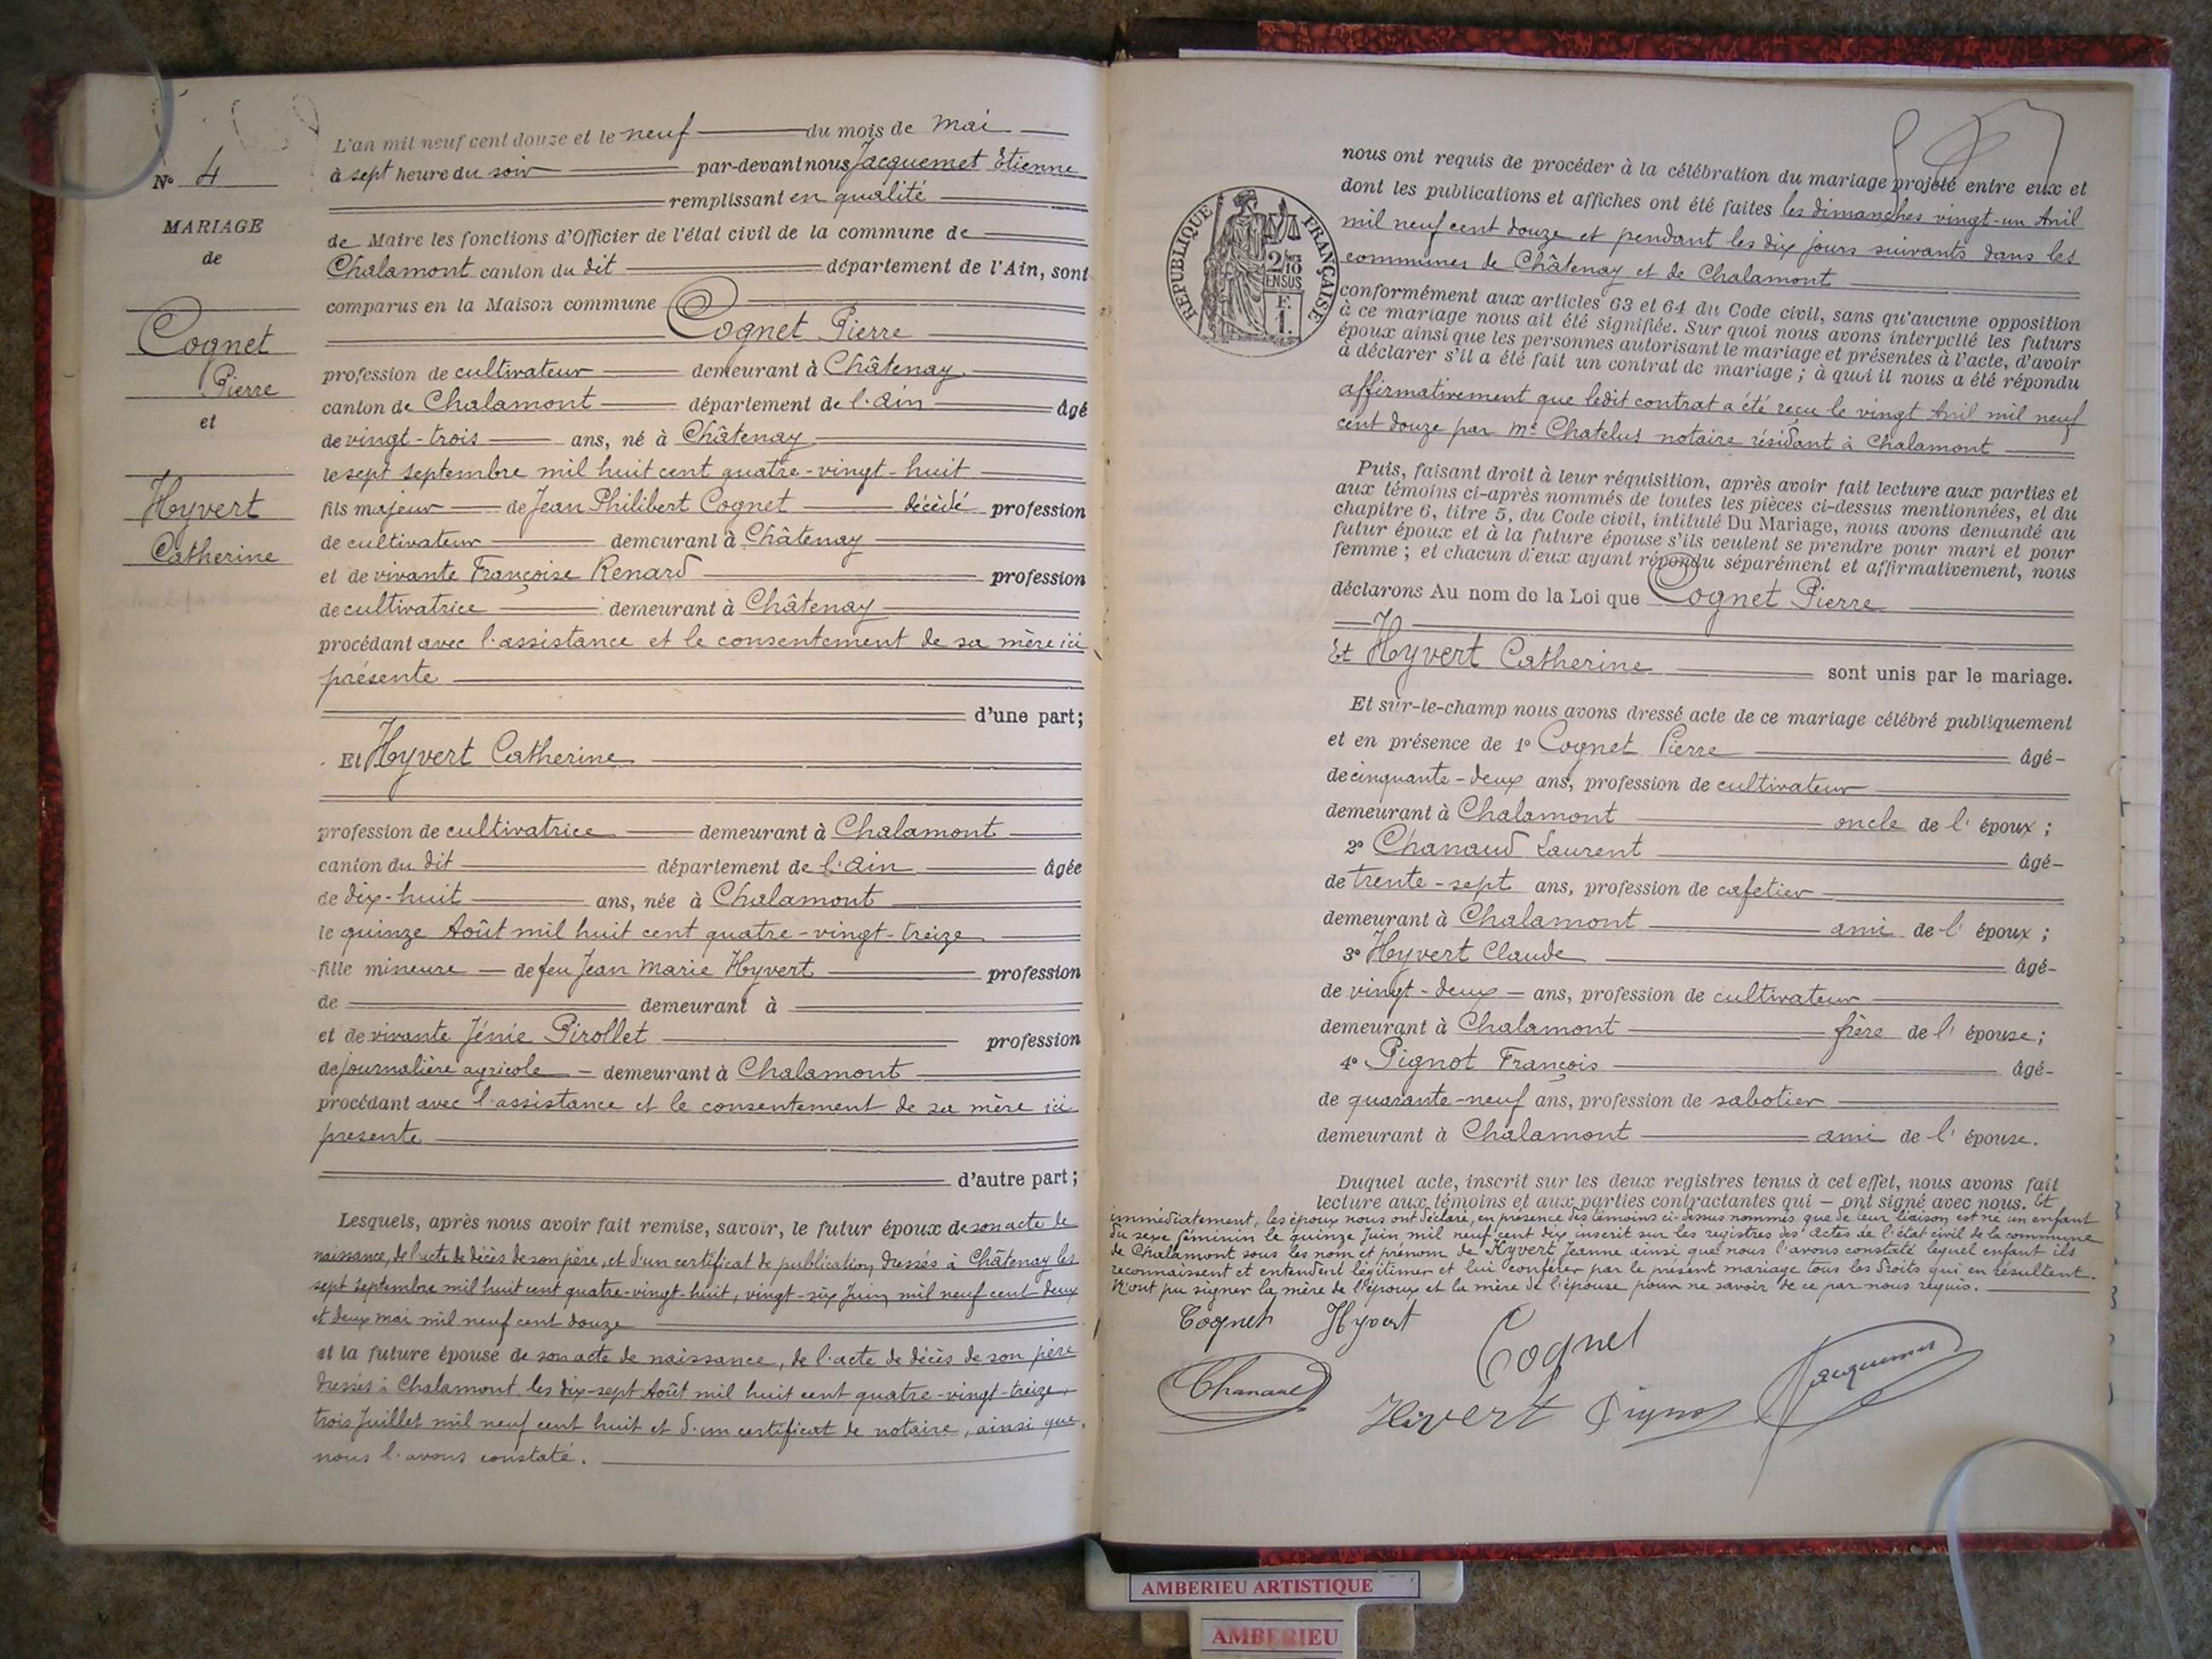 L'an mil neuf cent douze et le neuf du mois de Mai
à sept heure du soir par-devant nous Jacquemet Etienne
remplissant en qualité
de Maire les fonctions d'Officier de l'état civil de la commune de
Chalamont canton du dit département de l'Ain, sont
comparus en la Maison commune
Cognet Pierre
profession de cultivateur demeurant à Châtenay
canton de Chalamont département de l'Ain âgé
de vingt-trois ans, né à Châtenay
le sept septembre mil huit cent quatre-vingt-huit
fils majeur de Jean Philibert Cognet décédé profession
de cultivateur demeurant à Châtenay
et de vivante Françoise Renard profession
de cultivatrice demeurant à Châtenay
procédant avec l'assistance et le consentement de sa mère ici
présente
d'une part;
Et Hyvert Catherine
profession de cultivatrice demeurant à Chalamont
canton du dit département de l'Ain âgée
de dix-huit ans, née à Chalamont
le quinze Août mil huit cent quatre-vingt-treize
fille mineure de feu Jean Marie Hyvert profession
de demeurant à
et de vivante Jénie Pirollet profession
de journalière agricole demeurant à Chalamont
procédant avec l'assistance et le consentement de sa mère ici
presente
d'autre part;
Lesquels, après nous avoir fait remise, savoir, le futur époux de son acte de
naissance, de l'acte de décès de son père, et d'un certificat de publication dressés à Châtenay les
sept septembre mil huit cent quatre-vingt-huit, vingt-six Juin mil neuf cent deux
et deux mai mil neuf cent douze
et la future épouse de son acte de naissance, de l'acte de décès de son père
dressés à Chalamont les dix-sept Août mil huit cent quatre-vingt-treize,
trois Juillet mil neuf cent huit et d'un certificat de notaire, ainsi que
nous l'avons constaté.
No 4
MARIAGE
de
Cognet
Pierre
et
Hyvert
Catherine
nous ont requis de procéder à la célébration du mariage projeté entre eux et
dont les publications et affiches ont été faites les dimanches vingt-un Avril
mil neuf cent douze et pendant les dix jours suivants dans les
communes de Châtenay et de Chalamont
conformément aux articles 63 et 64 du Code civil, sans qu'aucune opposition
à ce mariage nous ait été signifiée. Sur quoi nous avons interpellé les futurs
époux ainsi que les personnes autorisant le mariage et présentes à l'acte, d'avoir
à déclarer s'il a été fait un contrat de mariage; à quoi il nous a été répondu
affirmativement que ledit contrat a été reçu le vingt Avril mil neuf
cent douze par Me Chatelus notaire résidant à Chalamont
Puis, faisant droit à leur réquisition, après avoir fait lecture aux parties et
aux témoins ci-après nommés de toutes les pièces ci-dessus mentionnées, et du
chapitre 6, titre 5, du Code civil, intitulé Du Mariage, nous avons demandé au
futur époux et à la future épouse s'ils veulent se prendre pour mari et pour
femme; et chacun d'eux ayant répondu séparément et affirmativement, nous
déclarons Au nom de la Loi que Cognet Pierre
Et Hyvert Catherine sont unis par le mariage.
Et sur-le-champ nous avons dressé acte de ce mariage célébré publiquement
et en présence de 1o Cognet Pierre âgé-
de cinquante-deux ans, profession de cultivateur
demeurant à Chalamont oncle de l'époux;
2o Chanaud Laurent âgé-
de trente-sept ans, profession de cafetier
demeurant à Chalamont ami de l'époux;
3o Hyvert Claude âgé-
de vingt-deux ans, profession de cultivateur
demeurant à Chalamont frère de l'épouse;
4o Pignot François âgé-
de quarante-neuf ans, profession de sabotier
demeurant à Chalamont ami de l'épouse.
Duquel acte, inscrit sur les deux registres tenus à cet effet, nous avons fait
lecture aux témoins et aux parties contractantes qui — ont signé avec nous. Et
immédiatement, les époux nous ont déclaré, en présence des témoins ci-dessus nommés que de leur liaison est né un enfant
du sexe féminin le quinze Juin mil neuf cent dix inscrit sur les registres des actes de l'état civil de la commune
de Chalamont sous les nom et prénom de Hyvert Jeanne ainsi que nous l'avons constaté lequel enfant ils
reconnaissent et entendent légitimer et lui conférer par le présent mariage tous les droits qui en résultent.
N'ont pu signer la mère de l'époux et la mère de l'épouse pour ne savoir de ce par nous requis.
Cognet Hyvert Cognet
Chanaud Hivert Pignot Jacquemet
RÉPUBLIQUE FRANÇAISE
2/10
EN SUS
F.
1.
AMBERIEU ARTISTIQUE
AMBERIEU